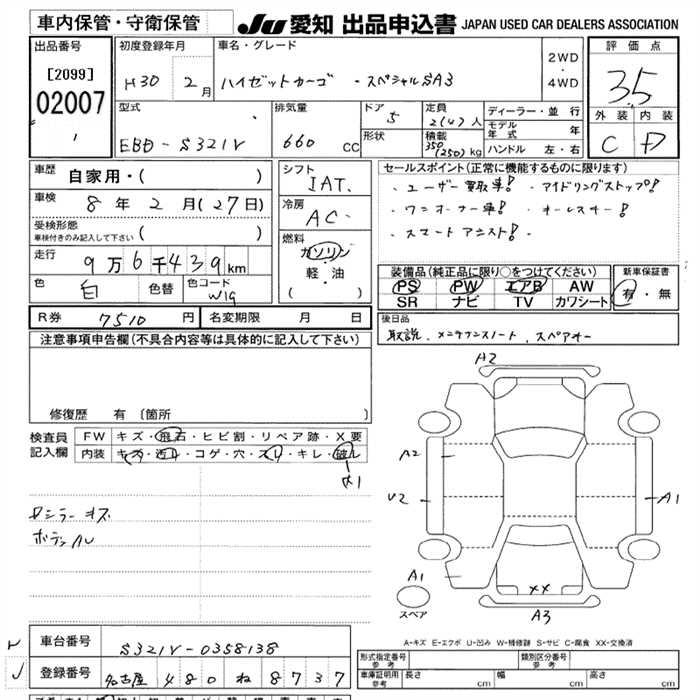 車内保管・守衛保管
JU 愛知 出品申込書 JAPAN USED CAR DEALERS ASSOCIATION
出品番号
[2099]
02007
初度登録年月
H30 2月
車名・グレード
ハイゼットカーゴ ・スペシャルSA3
2WD
・
4WD
評価点
3.5
外装 内装
C D
型式
EBD-S321V
排気量
660 cc
ドア
5
形状
定員
2(4)人
積載
350(250)kg
ディーラー・並行
モデル年式 年
ハンドル 左・右
車歴
自家用・( )
車検
8年2月(27日)
受検形態
車検付きのみ記入して下さい ( )
走行
9万6千439km
色
白
色替
色コード
W19
シフト
IAT.
冷房
AC
燃料
ガソリン
・
軽・油
( )
セールスポイント(正常に機能するものに限ります)
・ユーザー買取車! ・アイドリングストップ!
・ワンオーナー車! ・オールスオー!
・スマートアシスト! ・
装備品(純正品に限り○をつけてください)
PS PW エアB AW
SR ナビ TV カワシート
新車保証書
有・無
R券 7510円 名変期限 月 日
後日品
取説、メンテナンスノート、スペアキー
注意事項申告欄(不具合内容等は具体的に記入して下さい)
修復歴 有 〔箇所
検査員記入欄
FW キズ・飛石・ヒビ割・リペア跡・X要
内装 キズ・汚れ・コゲ・穴・スレ・キレ・破レ
ボラン
A2
A2
V2
A1
A1
XX
A3
スペア
A-キズ E-エクボ U-凹み W-補修跡 S-サビ C-腐食 XX-交換済
車台番号 S321V-0358138
登録番号 名古屋 480 ね 8737
形式指定番号 参考
類別区分番号 参考
車庫証明用 参考 長さ cm 幅 cm 高さ cm